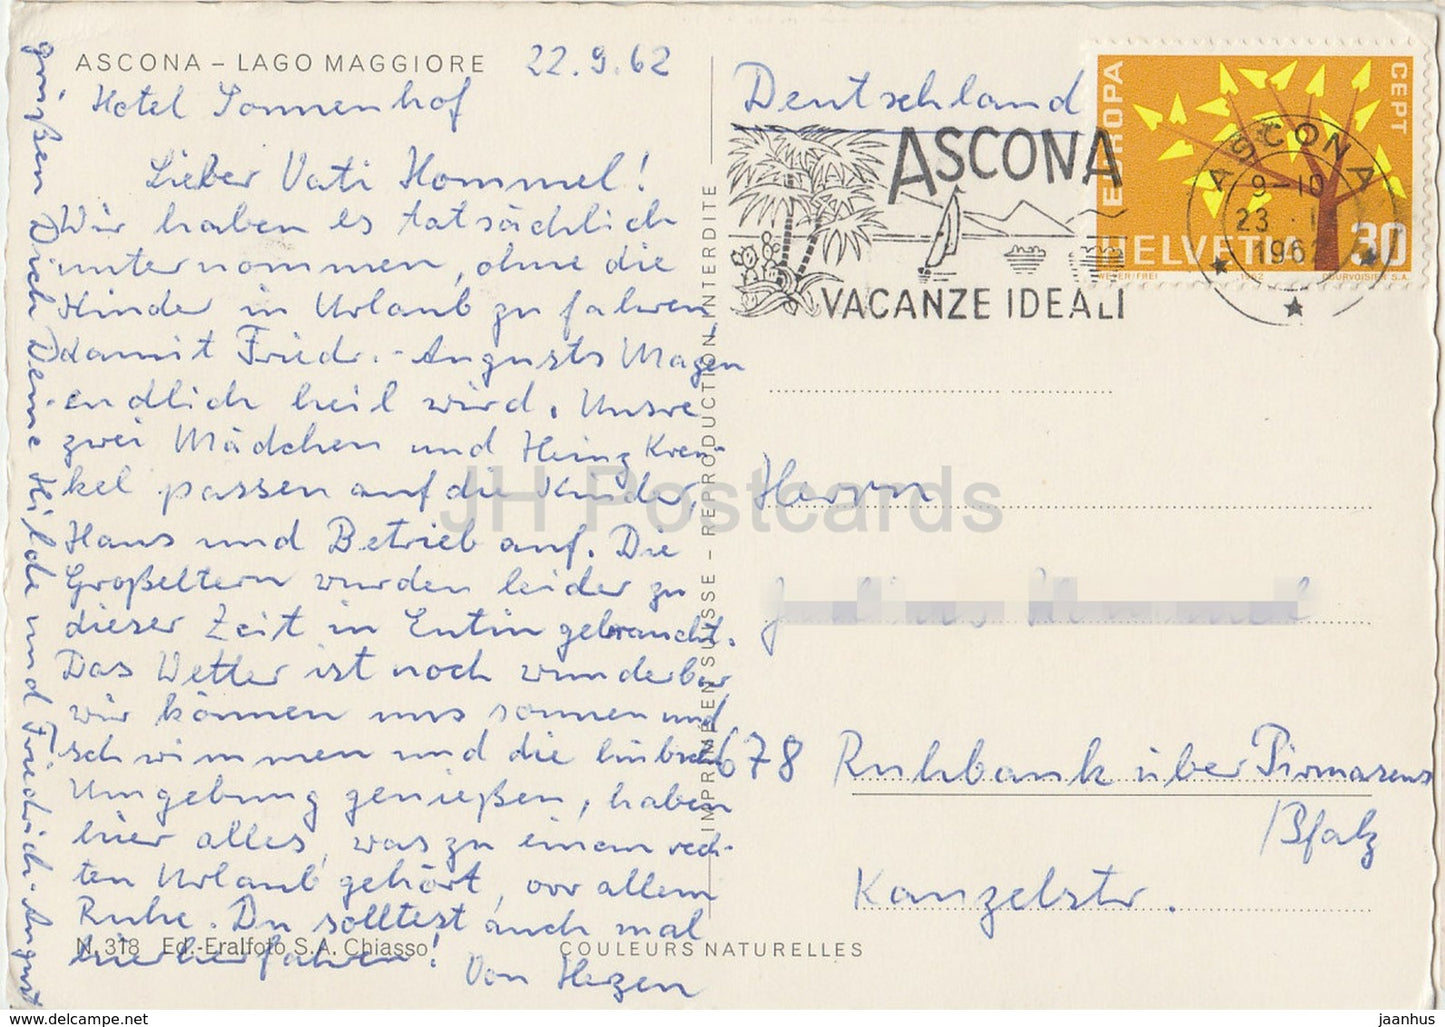 ASCONA – LAGO MAGGIORE 22.9.62
Hotel Sonnenhof
Lieber Vati Hommel!
Wir haben es tatsächlich
unternommen, ohne die
Kinder in Urlaub zu fahren,
damit Friedr.-Augusts Magen
endlich heil wird. Unsre
zwei Mädchen und Heinz Kren-
kel passen auf die Kinder,
Haus und Betrieb auf. Die
Großeltern wurden leider zu
dieser Zeit in Eutin gebraucht.
Das Wetter ist noch wunderbar
wir können uns sonnen und
schwimmen und die hübsche
Umgebung genießen, haben
hier alles, was zu einem rech-
ten Urlaub gehört, vor allem
Ruhe. Du solltest auch mal
hierherfahren! Von Herzen
grüßen Dich Deine Hilde und Friedrich-August
N. 318 Ed.-Eralfoto S.A. Chiasso
COULEURS NATURELLES
IMPRIMÉ EN SUISSE – REPRODUCTION INTERDITE
Deutschland
ASCONA
VACANZE IDEALI
EUROPA
CEPT
HELVETIA 30
1962
COURVOISIER S.A.
ASCONA
9–10
23
1962
Herrn
678 Ruhbank über Pirmasens
/Pfalz
Kanzelstr.
JH Postcards
www.delcampe.net
jaanhus